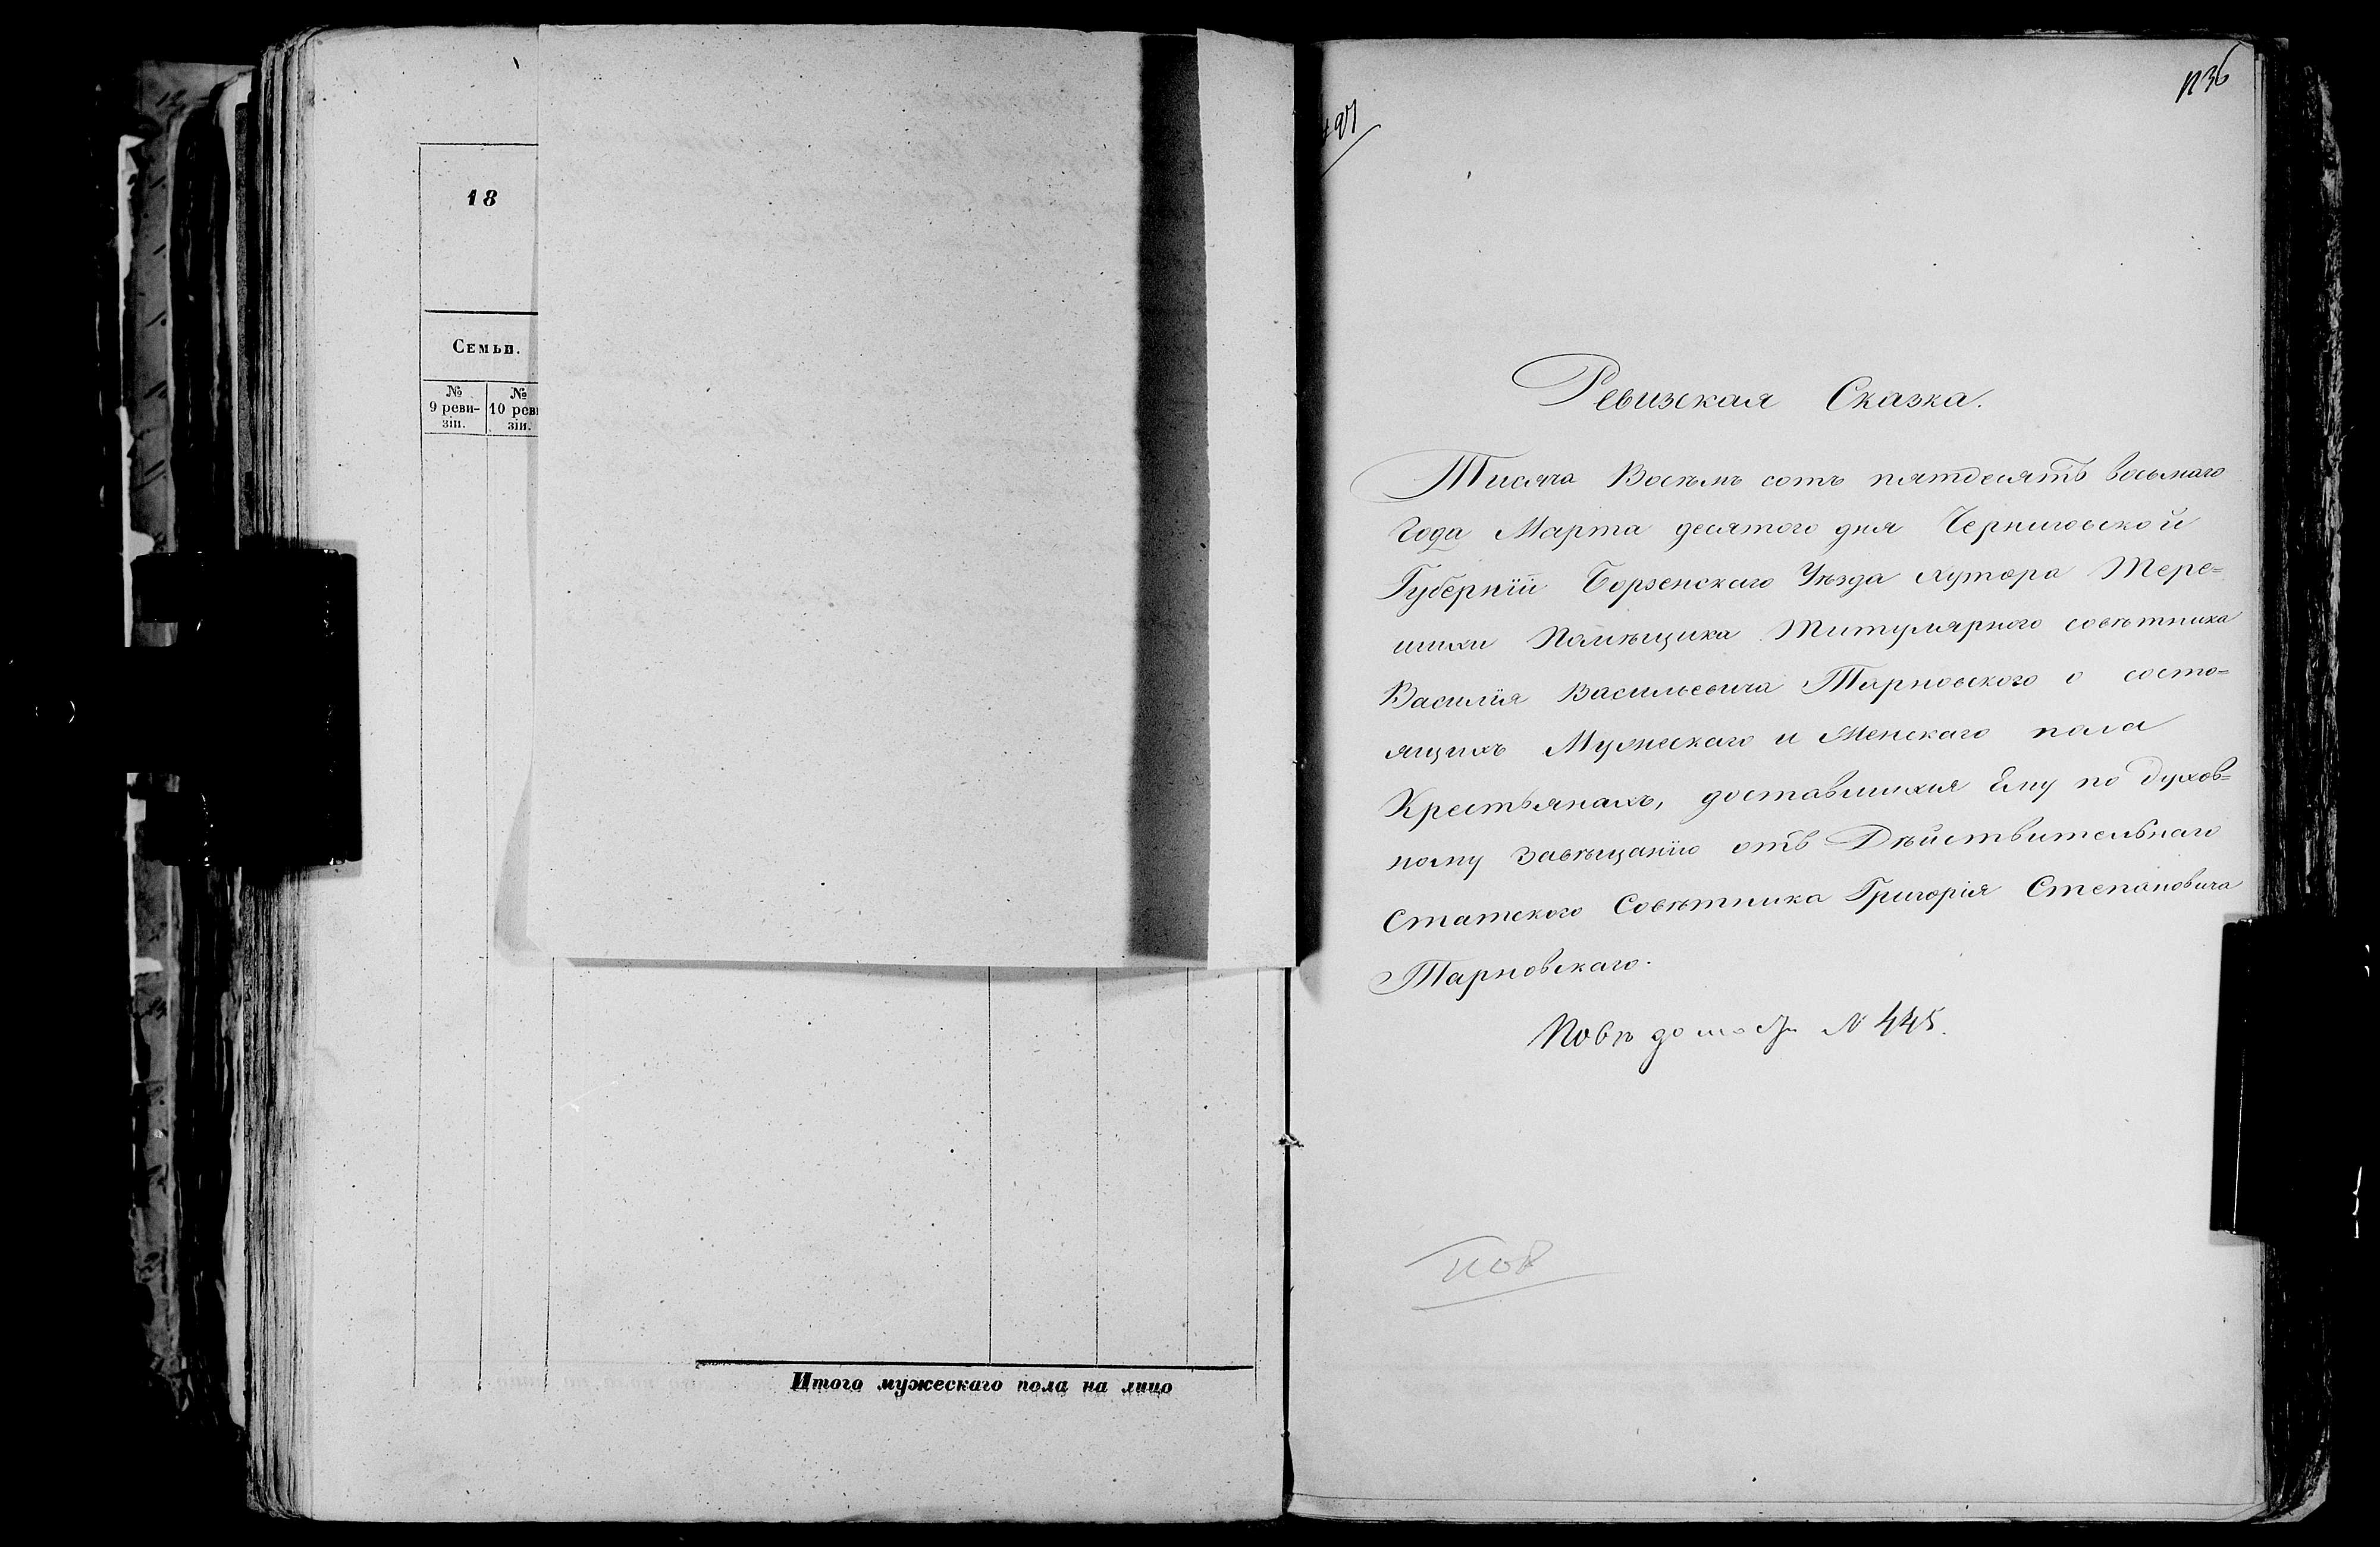 18
Семьи.
№ №
9 реви- 10 реви
зіи. зіи.
Итого мужескаго пола на лицо
Ревизская Сказка.
Тисяча Восѣмъ сотъ пятдесятъ восьмаго
Года Марта десятого дня Черниговской
Губерніи Борзенскаго Уѣзда хутора Тере=
шихи Помѣщика Титулярного совѣтника
Василія Васильевича Тарновского о состо=
ящихъ Мужескаго и Женскаго пола
Крестьянахъ, доставшихся Ему по духов=
ному завѣщанію отъ Дѣйствительнаго
Статского Совѣтника Григорія Степановича
Тарновскаго.
№ 445.